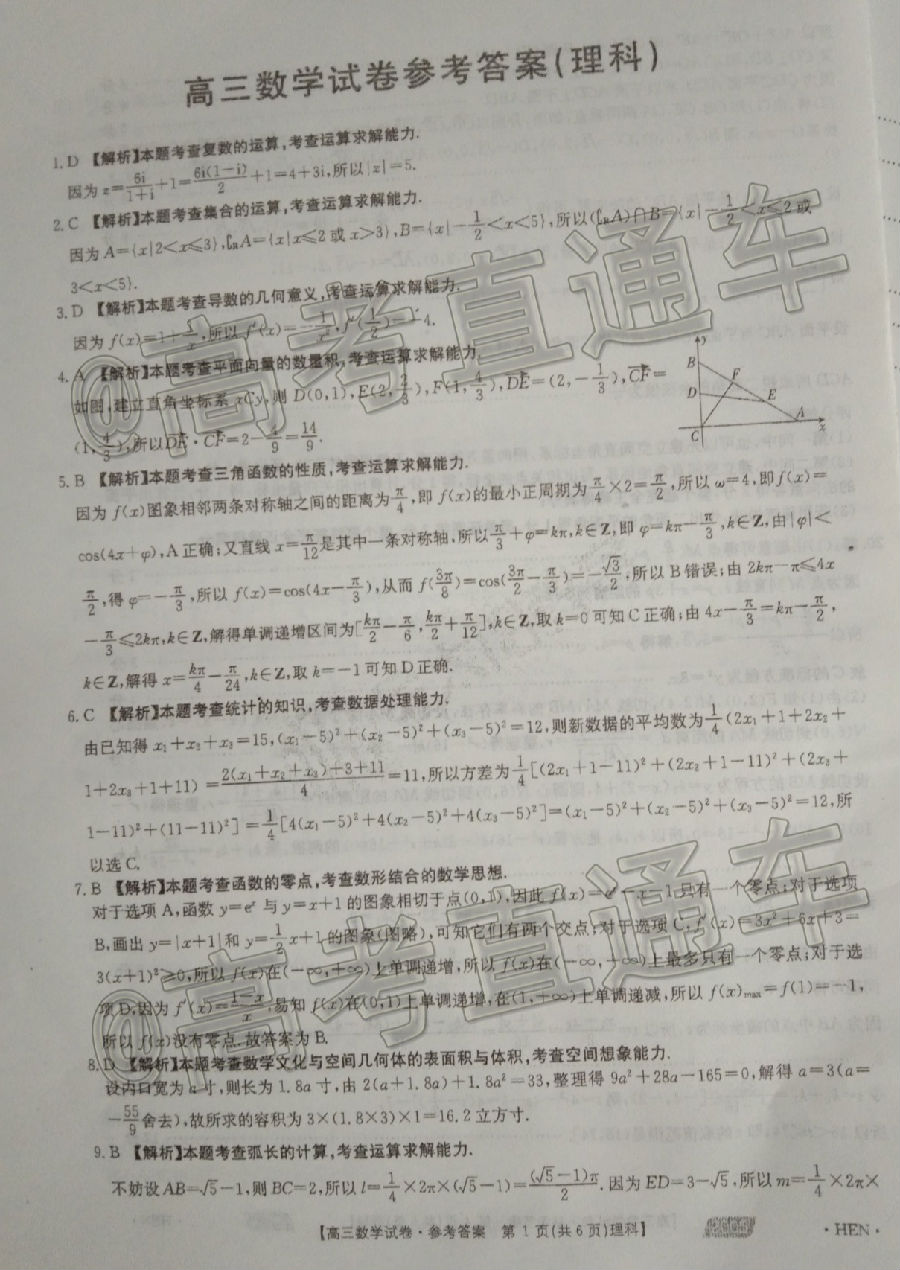 高三数学试卷参考答案(理科)
1. D 【解析】本题考查复数的运算,考查运算求解能力.
因为 z=6i/(1+i)+1=6i(1-i)/2+1=4+3i,所以|z|=5.
2. C 【解析】本题考查集合的运算,考查运算求解能力.
因为 A={x|2<x≤3},∁RA={x|x≤2 或 x>3},B={x|-1/2<x<5},所以(∁RA)∩B={x|-1/2<x≤2 或
3<x<5}.
3. D 【解析】本题考查导数的几何意义,考查运算求解能力.
因为 f(x)=1+1/x,所以 f′(x)=-1/x²,f′(1/2)=-4.
4. A 【解析】本题考查平面向量的数量积,考查运算求解能力.
如图,建立直角坐标系 xCy,则 D(0,1),E(2,2/3),F(1,4/3),DE=(2,-1/3),CF=
(1,4/3),所以DE·CF=2-4/9=14/9.
y
B
F
D
E
A
C
x
5. B 【解析】本题考查三角函数的性质,考查运算求解能力.
因为 f(x)图象相邻两条对称轴之间的距离为π/4,即 f(x)的最小正周期为π/4×2=π/2,所以 ω=4,即f(x)=
cos(4x+φ),A 正确;又直线 x=π/12是其中一条对称轴,所以π/3+φ=kπ,k∈Z,即 φ=kπ-π/3,k∈Z,由|φ|<
π/2,得 φ=-π/3,所以 f(x)=cos(4x-π/3),从而 f(3π/8)=cos(3π/2-π/3)=-√3/2,所以 B 错误;由 2kπ-π≤4x
-π/3≤2kπ,k∈Z,解得单调递增区间为[kπ/2-π/6,kπ/2+π/12],k∈Z,取 k=0 可知 C 正确;由 4x-π/3=kπ-π/2,
k∈Z,解得 x=kπ/4-π/24,k∈Z,取 k=-1 可知 D 正确.
6. C 【解析】本题考查统计的知识,考查数据处理能力.
由已知得 x₁+x₂+x₃=15,(x₁-5)²+(x₂-5)²+(x₃-5)²=12,则新数据的平均数为1/4(2x₁+1+2x₂+
1+2x₃+1+11)=(2(x₁+x₂+x₃)+3+11)/4=11,所以方差为1/4[(2x₁+1-11)²+(2x₂+1-11)²+(2x₃+
1-11)²+(11-11)²]=1/4[4(x₁-5)²+4(x₂-5)²+4(x₃-5)²]=(x₁-5)²+(x₂-5)²+(x₃-5)²=12,所
以选 C.
7. B 【解析】本题考查函数的零点,考查数形结合的数学思想.
对于选项 A,函数 y=eˣ 与 y=x+1 的图象相切于点(0,1),因此 f(x)=eˣ-x-1 只有一个零点;对于选项
B,画出 y=|x+1|和 y=1/2x+1 的图象(图略),可知它们有两个交点;对于选项 C,f′(x)=3x²+6x+3=
3(x+1)²≥0,所以 f(x)在(-∞,+∞)上单调递增,所以 f(x)在(-∞,+∞)上最多只有一个零点;对于选
项 D,因为 f′(x)=(1-x)/x,易知 f(x)在(0,1)上单调递增,在(1,+∞)上单调递减,所以 f(x)max=f(1)=-1,
所以 f(x)没有零点.故答案为 B.
8. D 【解析】本题考查数学文化与空间几何体的表面积与体积,考查空间想象能力.
设内口宽为 a 寸,则长为 1.8a 寸,由 2(a+1.8a)+1.8a²=33,整理得 9a²+28a-165=0,解得 a=3(a=
-55/9舍去),故所求的容积为 3×(1.8×3)×1=16.2 立方寸.
9. B 【解析】本题考查弧长的计算,考查运算求解能力.
不妨设 AB=√5-1,则 BC=2,所以 l=1/4×2π×(√5-1)=(√5-1)π/2.因为 ED=3-√5,所以 m=1/4×2π×
【高三数学试卷·参考答案 第 1 页(共 6 页)理科】
·HEN·
@高考直通车
@高考直通车